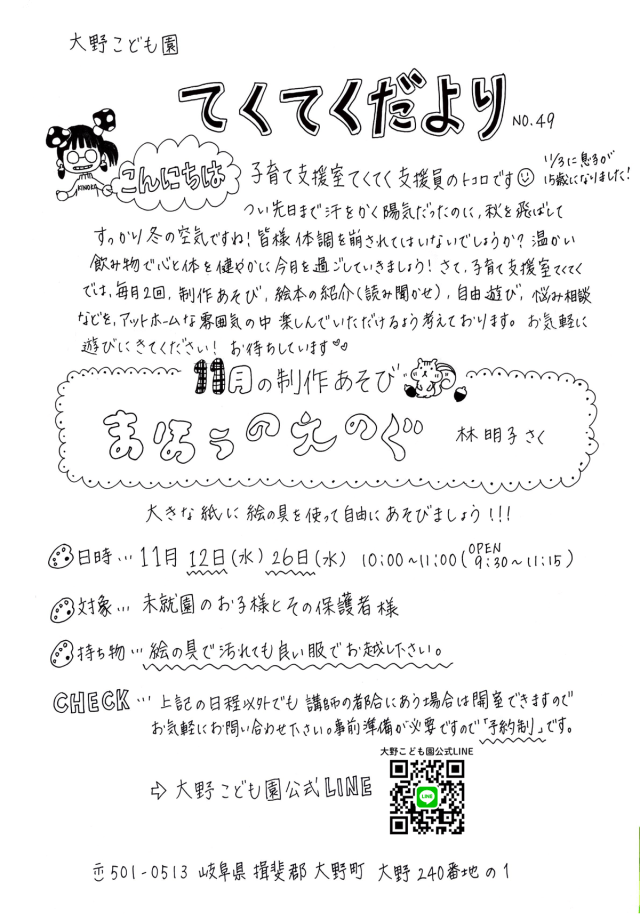 大野こども園
てくてくだより NO.49
こんにちは
KINOKO
子育て支援室てくてく支援員のトコロです
11/3に息子が
15歳になりました!
つい先日まで汗をかく陽気だったのに,秋を飛ばして
すっかり冬の空気ですね!皆様体調を崩されてはいないでしょうか?温かい
飲み物で心と体を健やかに今月を過ごしていきましょう!さて,子育て支援室てくてく
では,毎月2回,制作あそび,絵本の紹介(読み聞かせ),自由遊び,悩み相談
などを,アットホームな雰囲気の中楽しんでいただけるよう考えております。お気軽に
遊びにきてください!お待ちしています♡♡
11月の制作あそび
まほうのえのぐ 林明子さく
大きな紙に絵の具を使って自由にあそびましょう!!!
日時…11月12日(水)26日(水) 10:00~11:00(OPEN 9:30~11:15)
対象…未就園のお子様とその保護者様
持ち物…絵の具で汚れても良い服でお越し下さい。
CHECK…上記の日程以外でも講師の都合にあう場合は開室できますので
お気軽にお問い合わせ下さい。事前準備が必要ですので「予約制」です。
大野こども園公式LINE
⇨大野こども園公式LINE
LINE
〒501-0513 岐阜県揖斐郡大野町大野240番地の1